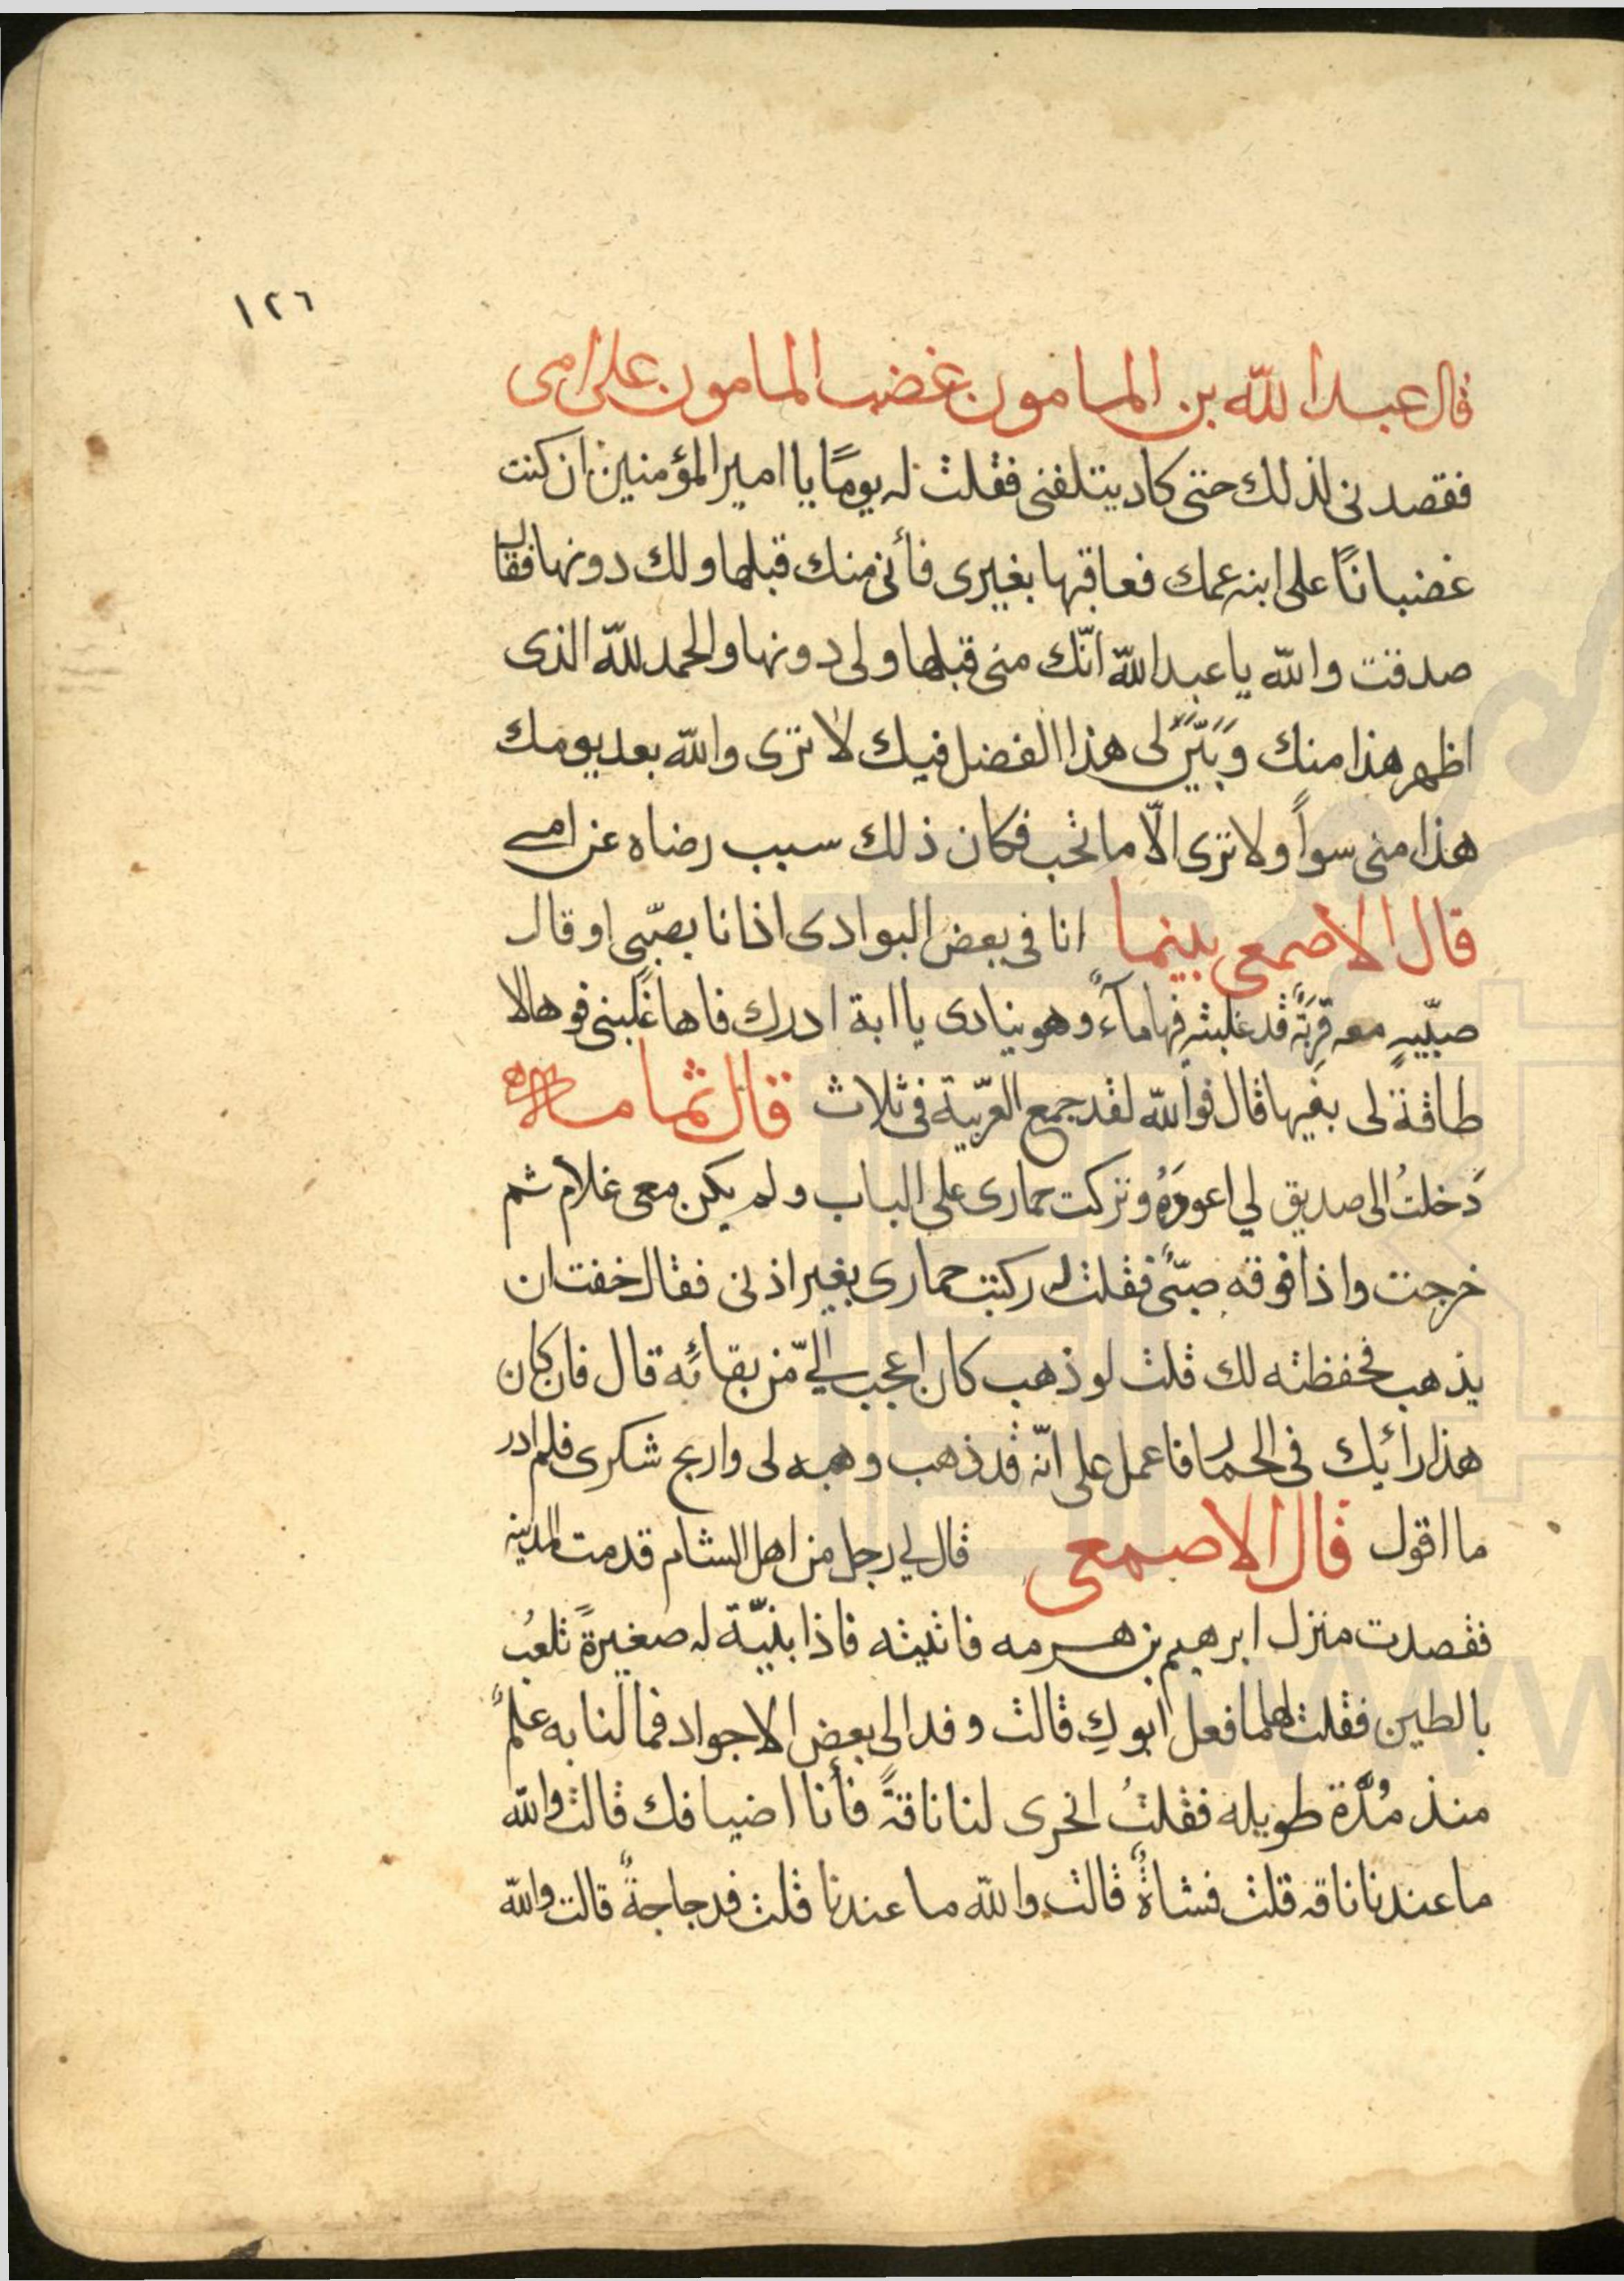 ١٢٦
قال عبد الله بن المامون غضب المامون على امى
فقصدنى لذلك حتى كاد يتلفنى فقلت له يومًا يا امير المؤمنين ان كنت
غضبانًا على ابنه عمك فعاقبها بغيرى فأنى منك قبلها ولك دونها فقال
صدقت والله يا عبد الله انّك منى قبلها ولى دونها والحمد لله الذى
اظهر هذا منك وَبَيَّنَ لى هذا الفضل فيك لا ترى والله بعد يومك
هذا منى سوأً ولا ترى الّا ما تحب فكان ذلك سبب رضاه عن امى
قال الاصمعى بينما انا فى بعض البوادى اذا انا بصبّىٍ او قال
صبيّيهٍ معه قربَةٌ قد غلبته فيها مآءٌ وهو ينادى يا ابة ادرك فاها غلبنى فوها لا
طاقة لى بفيها قال فوالله لقد جمع العربّية فى ثلاث قال ثمامه
دَخلتُ الى صديق لي اعودهُ وتركت حمارى على الباب ولم يكن معى غلام ثم
خرجت واذا فوقه صبّىٌ فقلت له ركبت حمارى بغير اذنى فقال خفت ان
يذهب فحفظته لك قلت لو ذهب كان اعجب اليّ من بقائه قال فان كان
هذا رائيك فى الحمار فاعمل على انّه قد ذهب وهبه لى واربح شكرى فلم ادر
ما اقول قال الاصمعى قال لي رجل من اهل الشام قدمت المدينه
فقصدت منزل ابرهيم بن هرمه فاتيته فاذا بنيّة له صغيرةً تلعبُ
بالطين فقلت لها ما فعل ابوكِ قالت وفد الى بعض الاجواد فما لنا به علمٌ
منذ مُدَّة طويله فقلتُ انحرى لنا ناقةً فأنا اضيافك قالت والله
ما عندنا ناقه قلت فشاةٌ قالت والله ما عندنا قلت فدجاجةٌ قالت والله